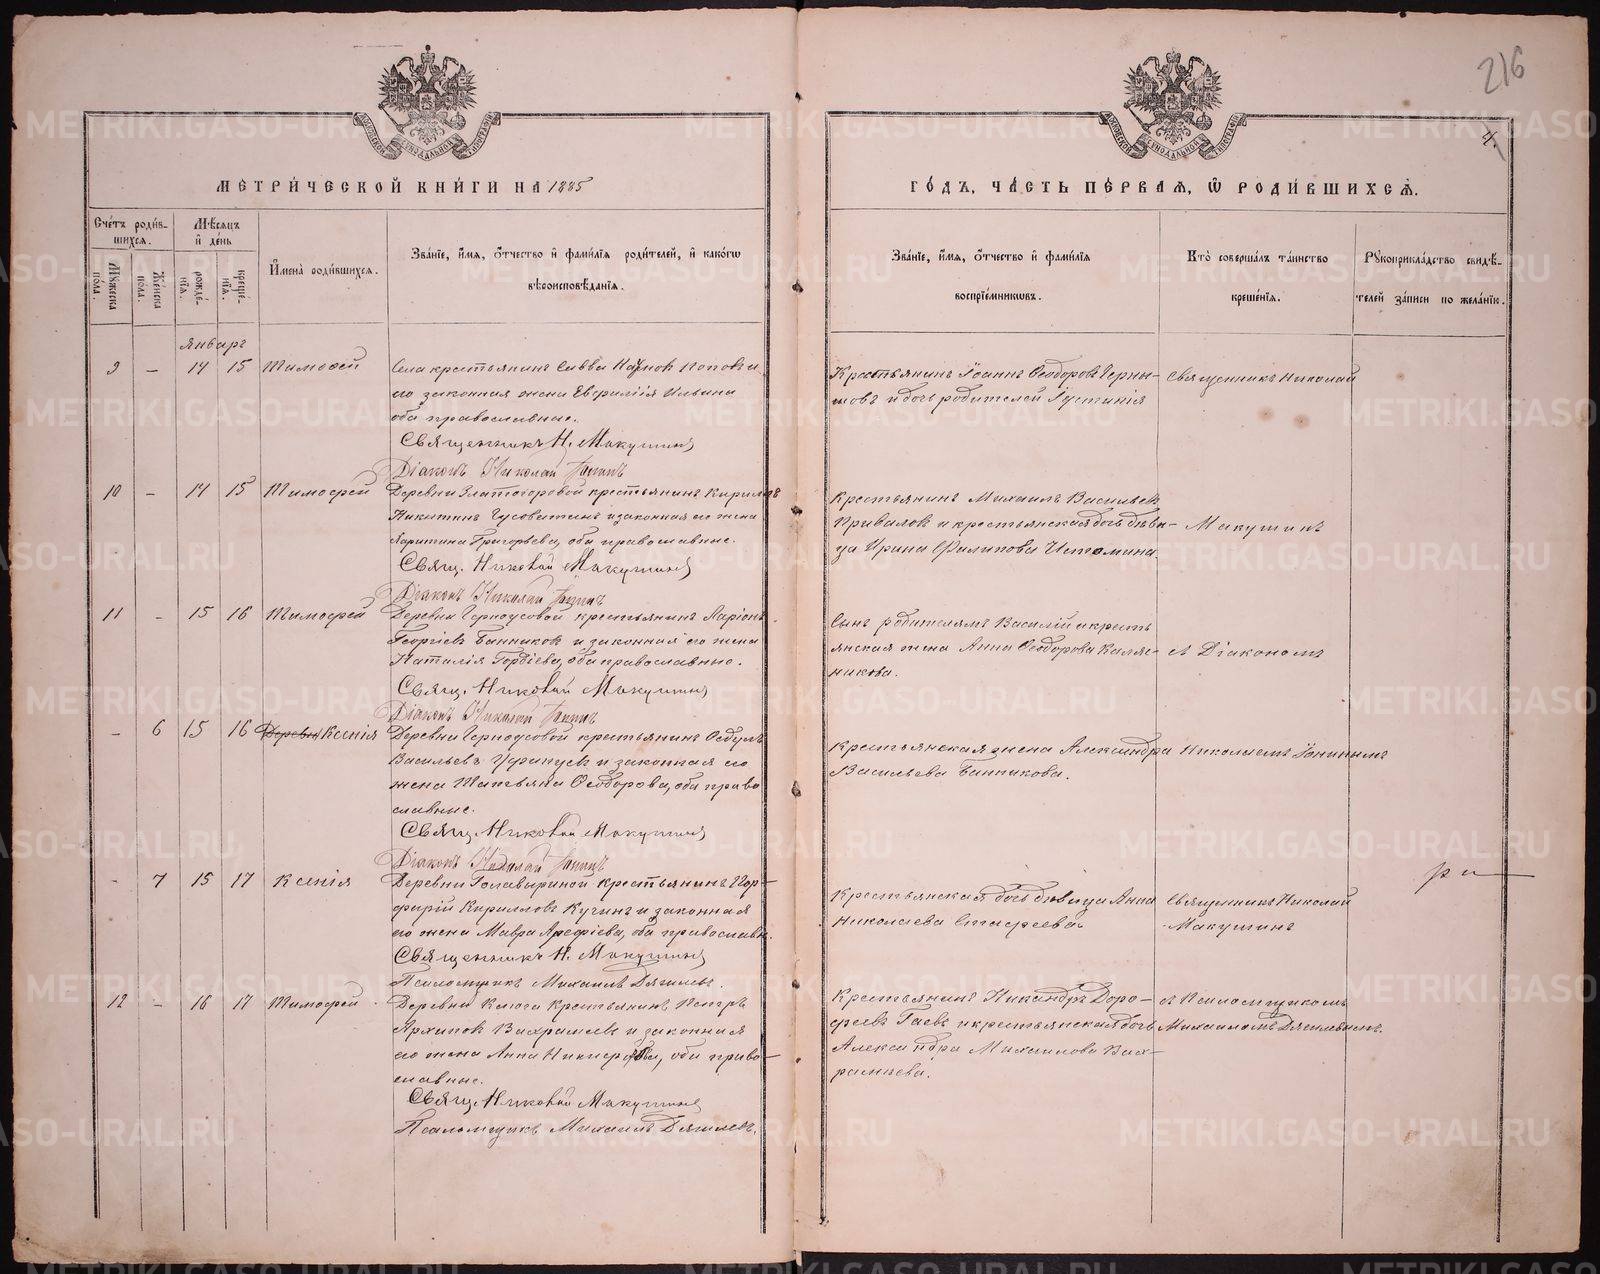 216
4.
МЕТРИ́ЧЕСКОЙ КНИ́ГИ НА 1885
ГО́ДЪ, ЧА́СТЬ ПЕ́РВАЯ, Ѡ РОДИ́ВШИХСѦ.
Сче́тъ роди́в-
шихсѧ.
Му́жеска по́ла.
Же́нска по́ла.
Мѣ́сяцъ
и҆ де́нь
рожде́-
нїѧ.
креще́-
нїѧ.
И҆мена̀ роди́вшихсѧ.
Зва́нїе, и҆́мѧ, ѻ҆́тчество и҆ фами́лїѧ роди́телей, и҆ како́гѡ
вѣроисповѣ́данїѧ.
Зва́нїе, и҆́мѧ, ѻ҆́тчество и҆ фами́лїѧ
воспрїе́мникѡвъ.
Кто̀ соверша́лъ та́инство
креще́нїѧ.
Рꙋкоприкла́дство свидѣ́-
телей за́писи по жела́нїю.
Январь
9 – 14 15 Тимофей
Села крестьянинъ Савва Попов и
его законная жена Евфимія Ильина
оба православные.
Священникъ Н. Макушинъ
Діаконъ Николай
Крестьянинъ Іоаннъ Ѳеодоровъ Черны-
шовъ и дочь родителей Іустинія
Священникъ Николай
10 – 14 15 Тимофей
Деревни Златогоровой крестьянинъ Кириллъ
Никитинъ и законная его жена
Харитина Григорьева, оба православные.
Свящ. Николай Макушинъ
Діаконъ Николай
Крестьянинъ Михаилъ Васильевъ
Приваловъ и крестьянская дочь дѣви-
ца Ирина Филипова Истомина
Макушинъ
11 – 15 16 Тимофей
Деревни Черноусовой крестьянинъ Ларіонъ
Георгіевъ Банниковъ и законная его жена
Наталія Гордіева, оба православные.
Свящ. Николай Макушинъ
Діаконъ Николай
Сынъ родителямъ Василій и кресть
янская жена Анна Ѳеодорова
никова.
съ Діакономъ
– 6 15 16 Деревни Ксенія
Деревни Черноусовой крестьянинъ
Васильевъ и законная его
жена Татьяна Ѳеодорова, оба право
славные.
Свящ. Николай Макушинъ
Діаконъ Николай
Крестьянская жена Александра
Васильева Банникова.
Николаемъ
- 7 15 17 Ксенія
Деревни Голавыриной крестьянинъ Пор-
фирій Кирилловъ Кучинъ и законная
его жена Мавра Арефіева, оба православн.
Священникъ Н. Макушинъ
Псаломщикъ Михаилъ
Крестьянская дочь дѣвица Анна
Николаева Стафеева
Священникъ Николай
Макушинъ
12 – 16 17 Тимофей
Деревни Ключа крестьянинъ Петръ
Архиповъ Вахрамеевъ и законная
его жена Анна оба право-
славные.
Свящ. Николай Макушинъ
Псаломщикъ Михаилъ
Крестьянинъ Никандръ Доро-
феевъ Гаевъ и крестьянская дочь
Александра Михаилова Вах-
рамеева.
съ Псаломщикомъ
Михаиломъ
METRIKI.GASO-URAL.RU